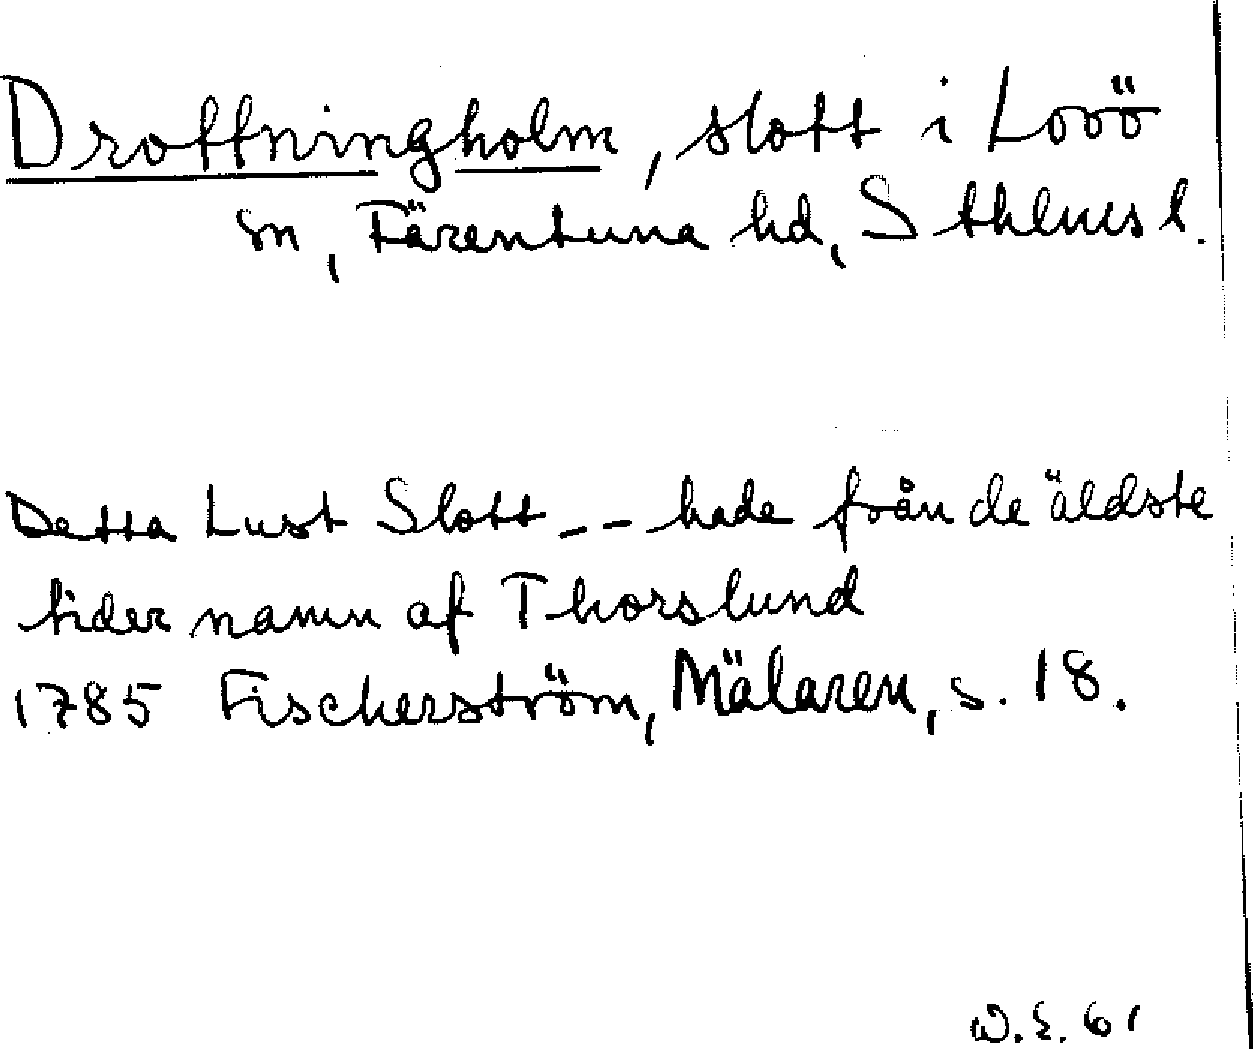 Drottningholm, slott i Lovö
sn, Färentuna hd, Sthlms l.
Detta Lust Slott -- hade från de äldste
tider namn af Thorslund
1785 Fischerström, Mälaren, s. 18.
W.E. 61